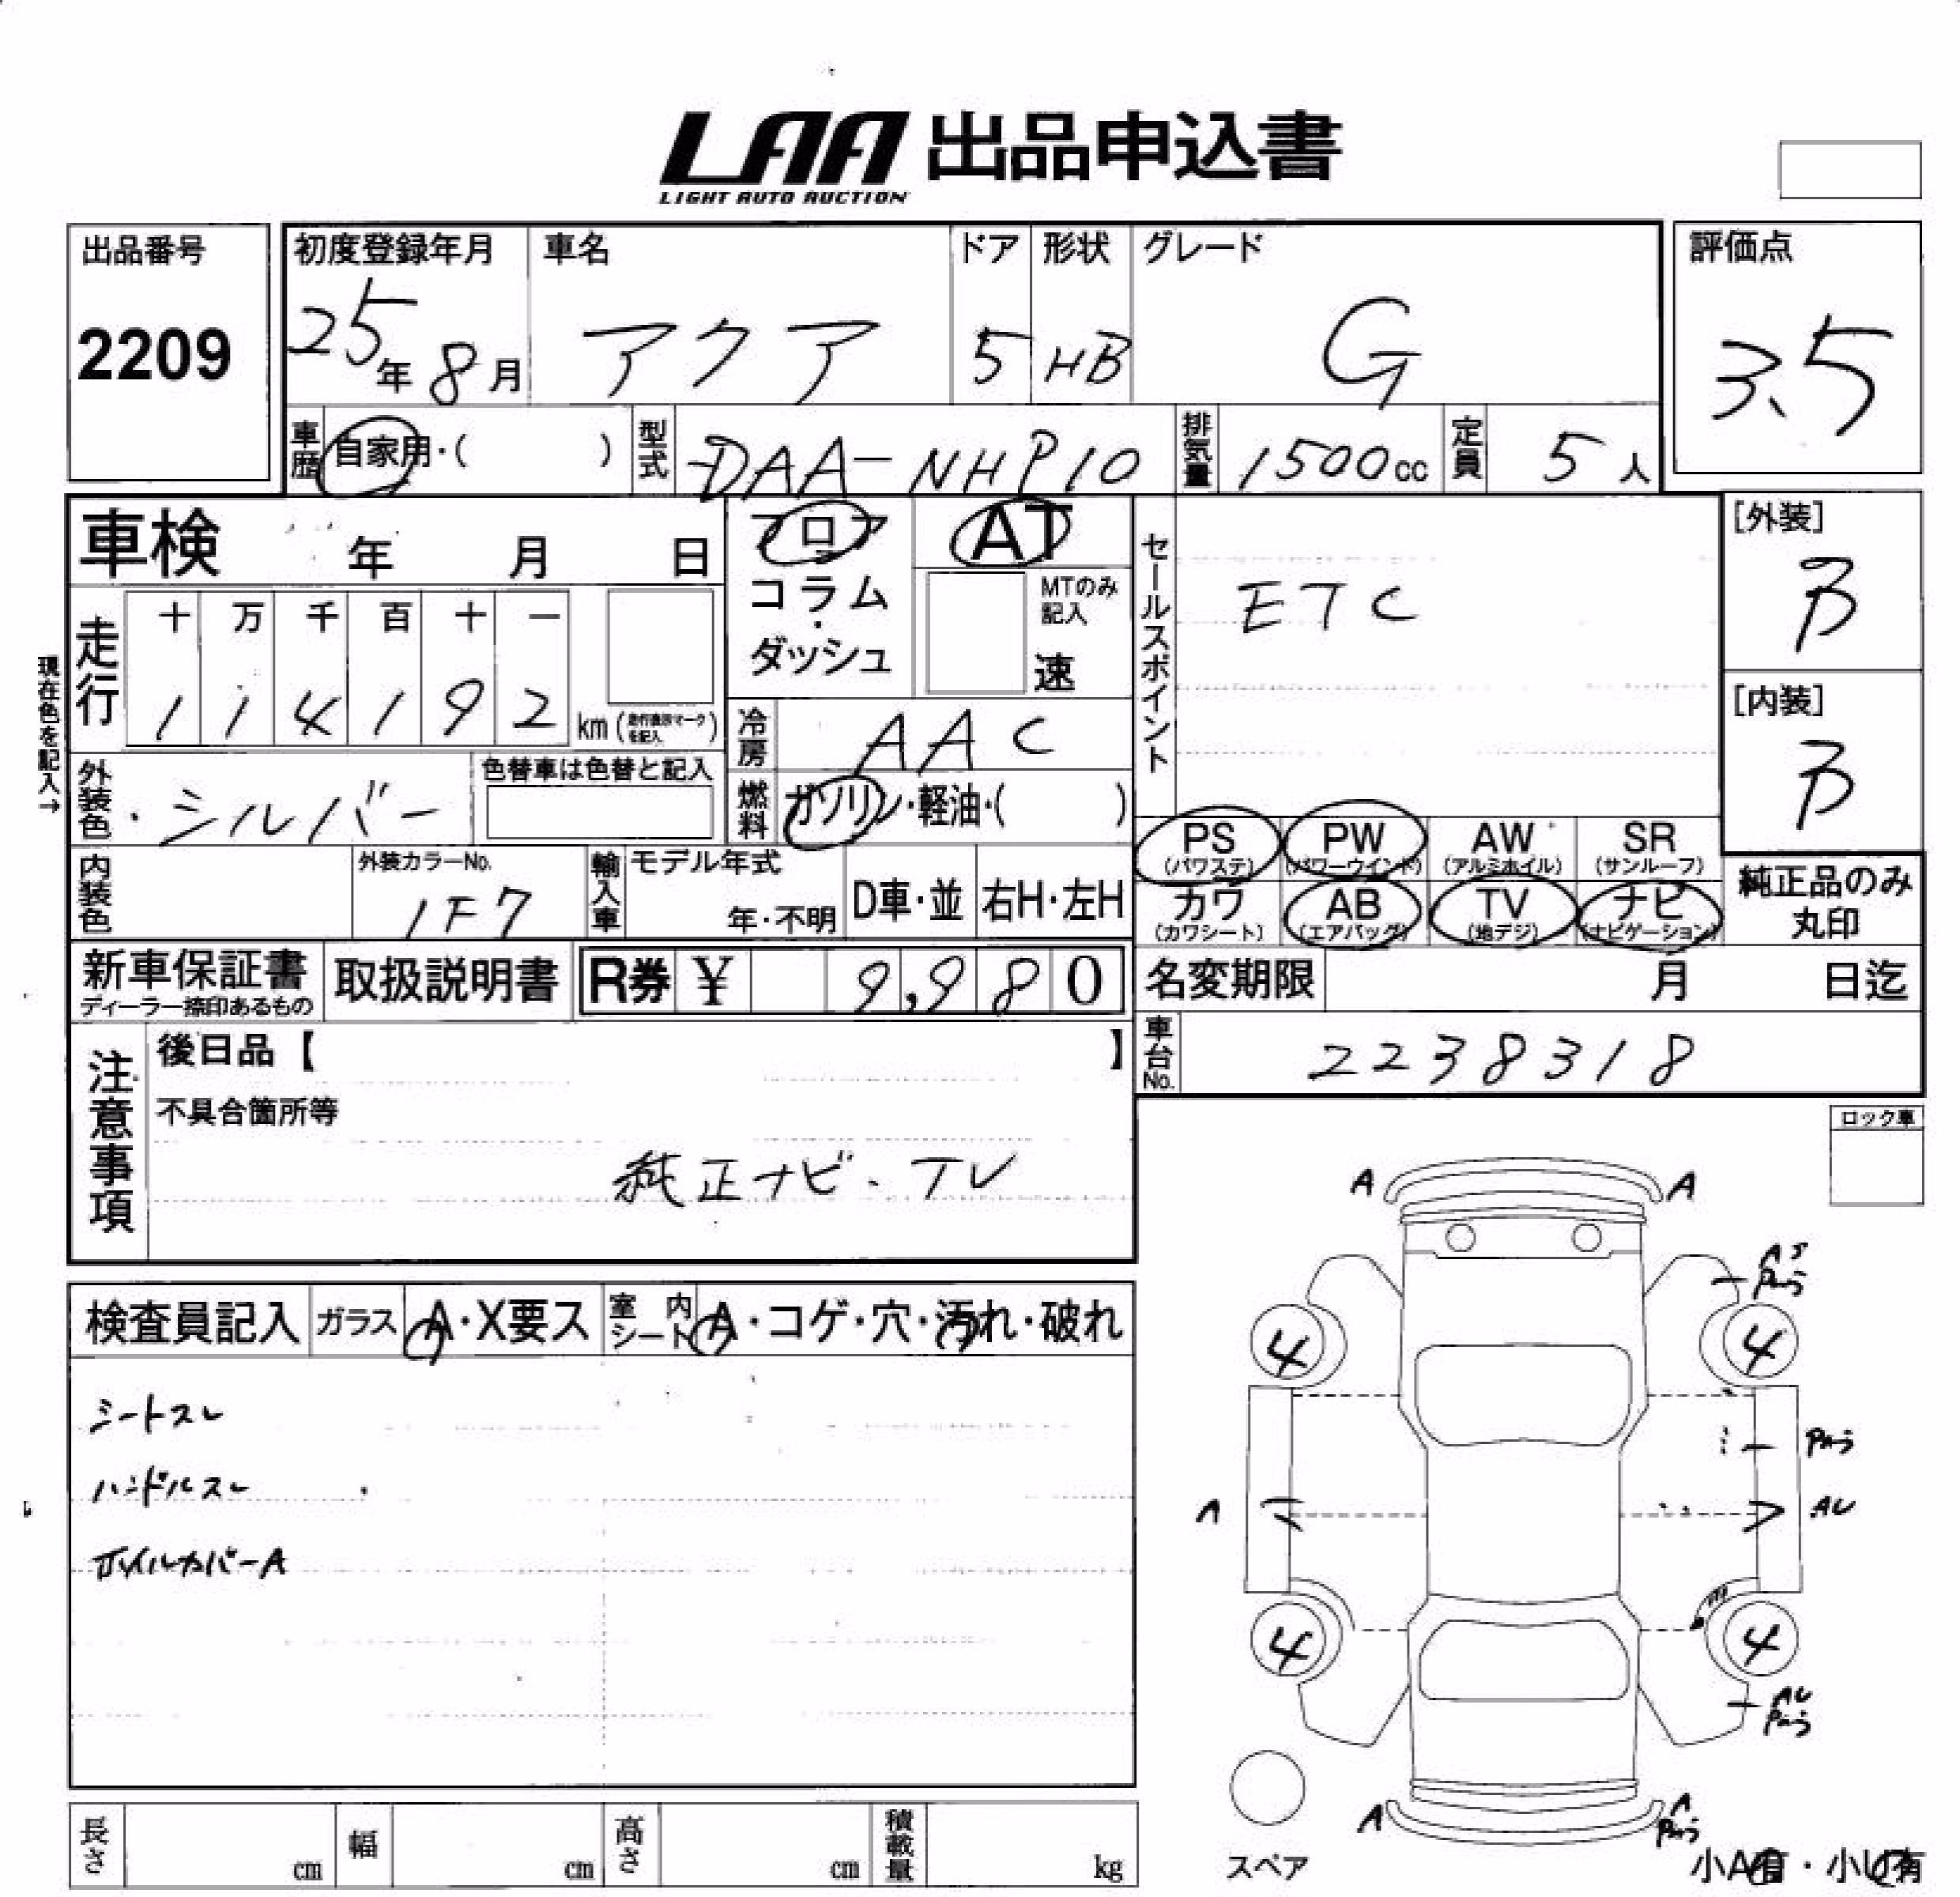 LAA 出品申込書
LIGHT AUTO AUCTION
出品番号
2209
初度登録年月
25年8月
車名
アクア
ドア
5
形状
HB
グレード
G
評価点
3.5
車歴
自家用・( )
型式
DAA-NHP10
排気量
1500cc
定員
5人
車検 年 月 日
フロア
コラム
・
ダッシュ
AT
MTのみ
記入
速
セールスポイント
ETC
[外装]
B
[内装]
B
現在色を記入→
走行
十 万 千 百 十 一
1 1 4 1 9 2 km
冷房
AAC
外装色
・シルバー
色替車は色替と記入
燃料
ガソリン・軽油・( )
PS
(パワステ)
PW
(パワーウインド)
AW
(アルミホイル)
SR
(サンルーフ)
カワ
(カワシート)
AB
(エアバッグ)
TV
(地デジ)
ナビ
(ナビゲーション)
純正品のみ
丸印
内装色
外装カラーNo.
1F7
輸入車
モデル年式
年・不明
D車・並
右H・左H
新車保証書
ディーラー捺印あるもの
取扱説明書
R券 ¥ 9,980
名変期限 月 日迄
車台No.
2238318
注意事項
後日品【 】
不具合箇所等
純正ナビ・TV
ロック車
検査員記入
ガラス
A・X要ス
室内シート
A・コゲ・穴・汚れ・破れ
シートスレ
ハンドルスレ
ホイルカバーA
A
A
4
4
A
AU
4
4
AU
A
A
スペア
小A有・小U有
長さ
cm
幅
cm
高さ
cm
積載量
kg